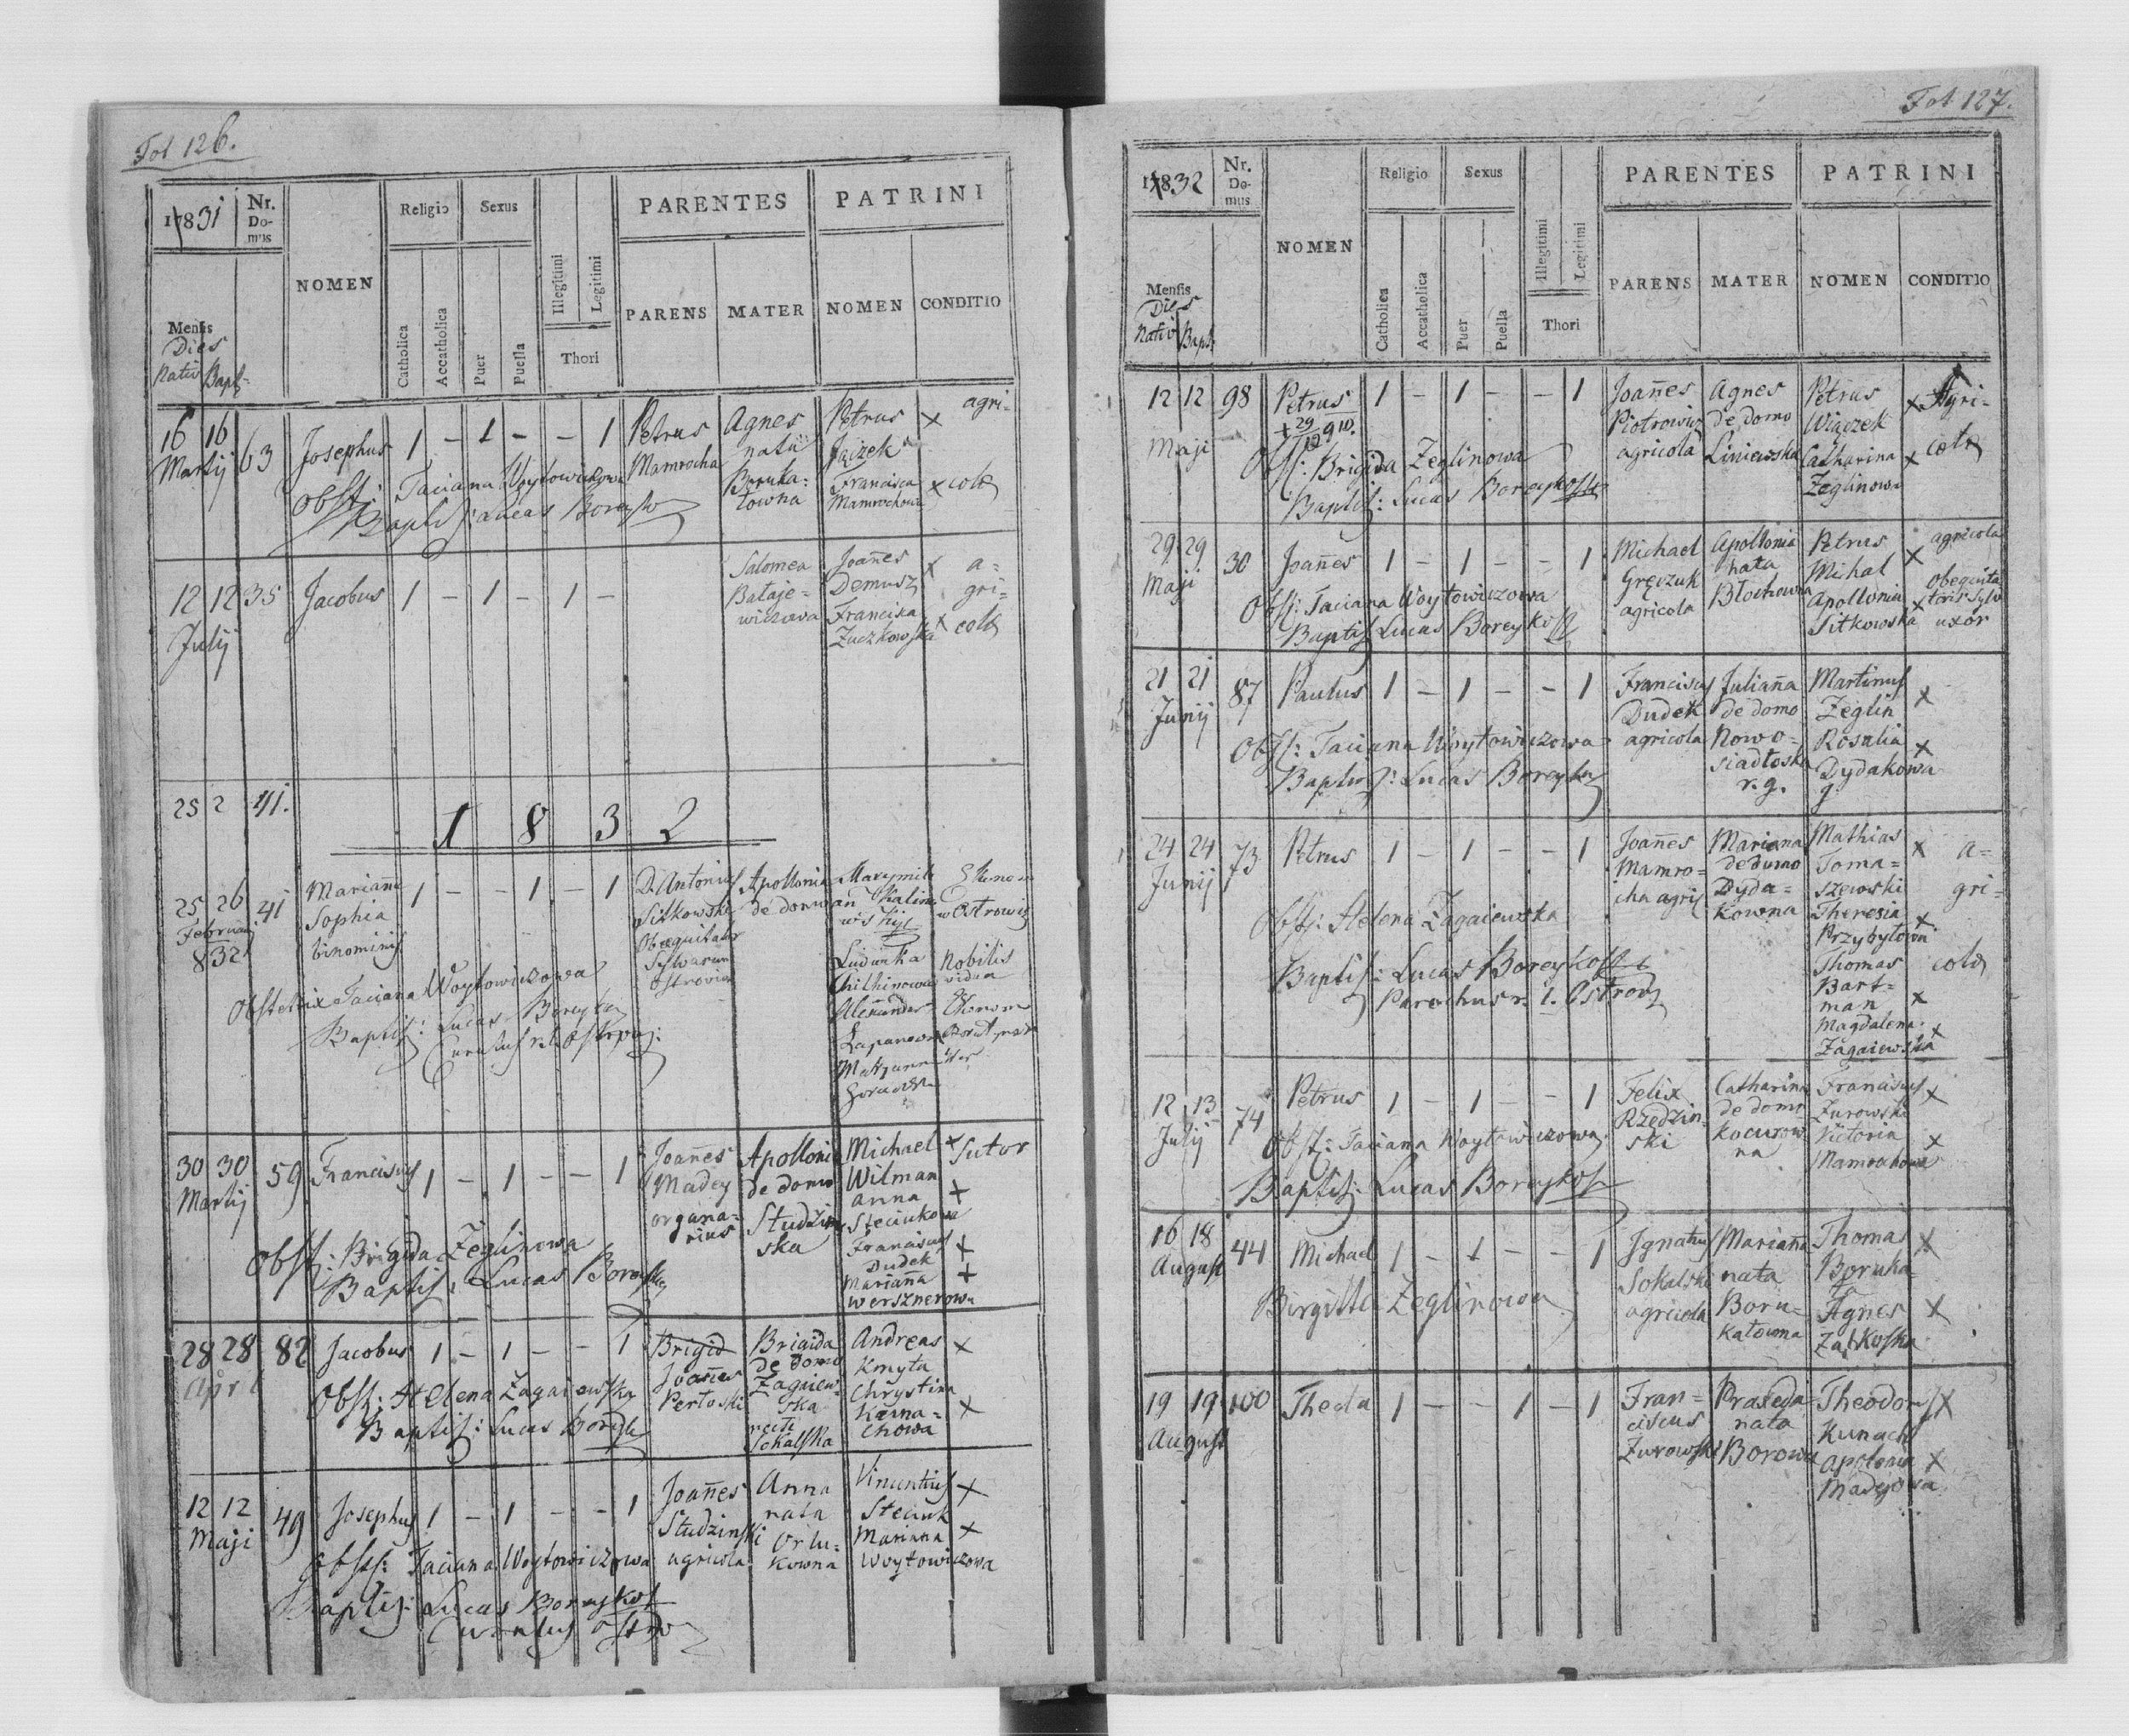 Fol 126.
1831
Nr. Do-mus
NOMEN
Religio
Sexus
PARENTES
PATRINI
Catholica
Accatholica
Puer
Puella
Illegitimi
Legitimi
Thori
PARENS
MATER
NOMEN
CONDITIO
Mensis
Dies
Nativ Bapt:
16 16 63 Josephus 1 – 1 – – 1 Petrus Agnes Petrus x agri-
Martij Mamrocha nata Jajzek
Boruka= Francisca x colæ
towna Mamrochowa
Obst: Taciana Woytowiczowa
Baptis: Lucas Boreyko
12 12 35 Jacobus 1 – 1 – 1 – Salomea Joanes x a=
July Bataje= Demusz gri=
wiczowa Francisca x colæ
Zuczkowska
25 2 41.
1 8 3 2
25 26 41 Marianna 1 – – 1 – 1 D. Antonius Apollonia
Februarij Sophia Sitkowski de domo
832 binominis Obequitator
Sylvarum
Ostrovien
Ludwika Nobilis
vidua
Alexander
Obstetrix Taciana Woytowiczowa
Baptis: Lucas Boreyko
Curatus r. l. Ostrow:
30 30 59 Franciscus 1 – 1 – – 1 Joanes Apollonia Michael x Sutor
Martij Madey de domo Wilman
organa= Studzin Anna x
rius ska Steciukowa
Franciscus x
Dudek
Marianna x
Wersznerowa
Obst: Brigida Zeglinowa
Baptis: Lucas Boreyko
28 28 82 Jacobus 1 – 1 – – 1 Brigid Brigida Andreas x
April Joanes de domo Kmyta
Pertoski Zagaiew= Chrystina
ska Karna= x
recte chowa
Sokalska
Obst: Helena Zagaiewska
Baptis: Lucas Boreyko
12 12 49 Josephus 1 – 1 – – 1 Joanes Anna Vincentius x
Maji Studzinski nata Steciuk
agricola Orlu= Marianna x
kowna Woytowiczowa
Obst: Taciana Woytowiczowa
Baptis: Lucas Boreyko
Curatus Ostro
Fol 127.
1832
Nr. Do-mus
NOMEN
Religio
Sexus
PARENTES
PATRINI
Catholica
Accatholica
Puer
Puella
Illegitimi
Legitimi
Thori
PARENS
MATER
NOMEN
CONDITIO
Mensis
Dies
Nativ Bapt:
12 12 98 Petrus 1 – 1 – – 1 Joanes Agnes Petrus x Agri-
Maji Piotrowicz de domo Wiączek
agricola Liniewska Catharina x colæ
Zeglinowa
Obst: Brigida Zeglinowa
Baptis: Lucas Boreyko
29 29 30 Joanes 1 – 1 – – 1 Michael Apollonia Petrus x agricola
Maji Gręczuk nata Michal
agricola Błochowna Apollonia x obequita
Sitkowska toris Sylv
uxor
Obst: Taciana Woytowiczowa
Baptis Lucas Boreyko
21 21 87 Paulus 1 – 1 – – 1 Franciscus Julianna Martinus x
Junij Dudek de domo Zeglin
agricola Nowo= Rosalia x
siadłoska Dydakowa
r. g. g
Obst: Taciana Woytowiczowa
Baptis: Lucas Boreyko
24 24 73 Petrus 1 – 1 – – 1 Joanes Mariana Mathias x a=
Junij Mamro= de domo Toma= gri=
cha agri Dyda= szewski
kowna Theresia x
Przybytown
Thomas colæ
Bart=
man x
Magdalena x
Zagaiewska
Obst: Helena Zagaiewska
Baptis: Lucas Boreyko
Parochus r. l. Ostrow
12 13 74 Petrus 1 – 1 – – 1 Felix Catharina Franciscus x
Julij Rzedzin= de domo Zurowski
ski Kocurow Victoria x
na Mamrochowa
Obst: Taciana Woytowiczowa
Baptis: Lucas Boreyko
16 18 44 Michael 1 – 1 – – 1 Ignatius Marianna Thomas x
August Sokalski nata Boruka
agricola Boru= Agnes x
katowna
Birgitta Zeglinowa
19 19 100 Thecla 1 – – 1 – 1 Fran= Praxeda Theodor x
August ciscus nata Kunach
Zurowski Borowa Apolonia x
Madejowa